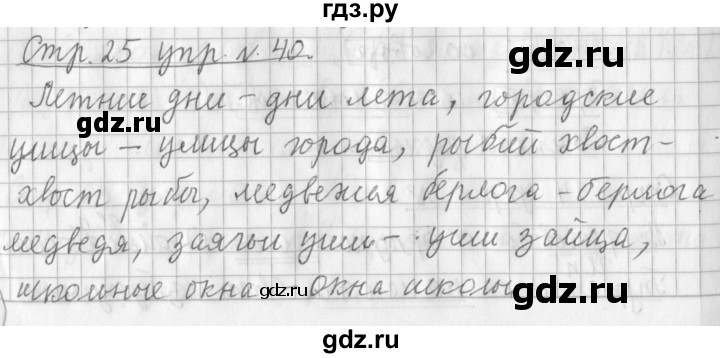 гдз.ру
Стр. 25 упр. N. 40.
Летние дни – дни лета, городские
gdz.ru
gdz.ru
улицы – улицы города, рыбий хвост –
хвост рыбы, медвежья берлога – берлога
медведя, заячьи уши – уши зайца,
школьные окна окна школы
gdz.ru
gdz.ru
gdz.ru